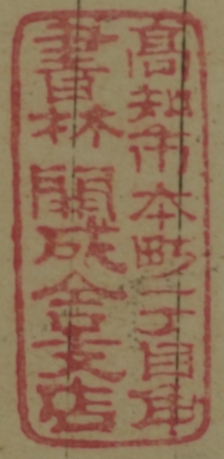 高知市本町二丁目角
書林 開成舎支店